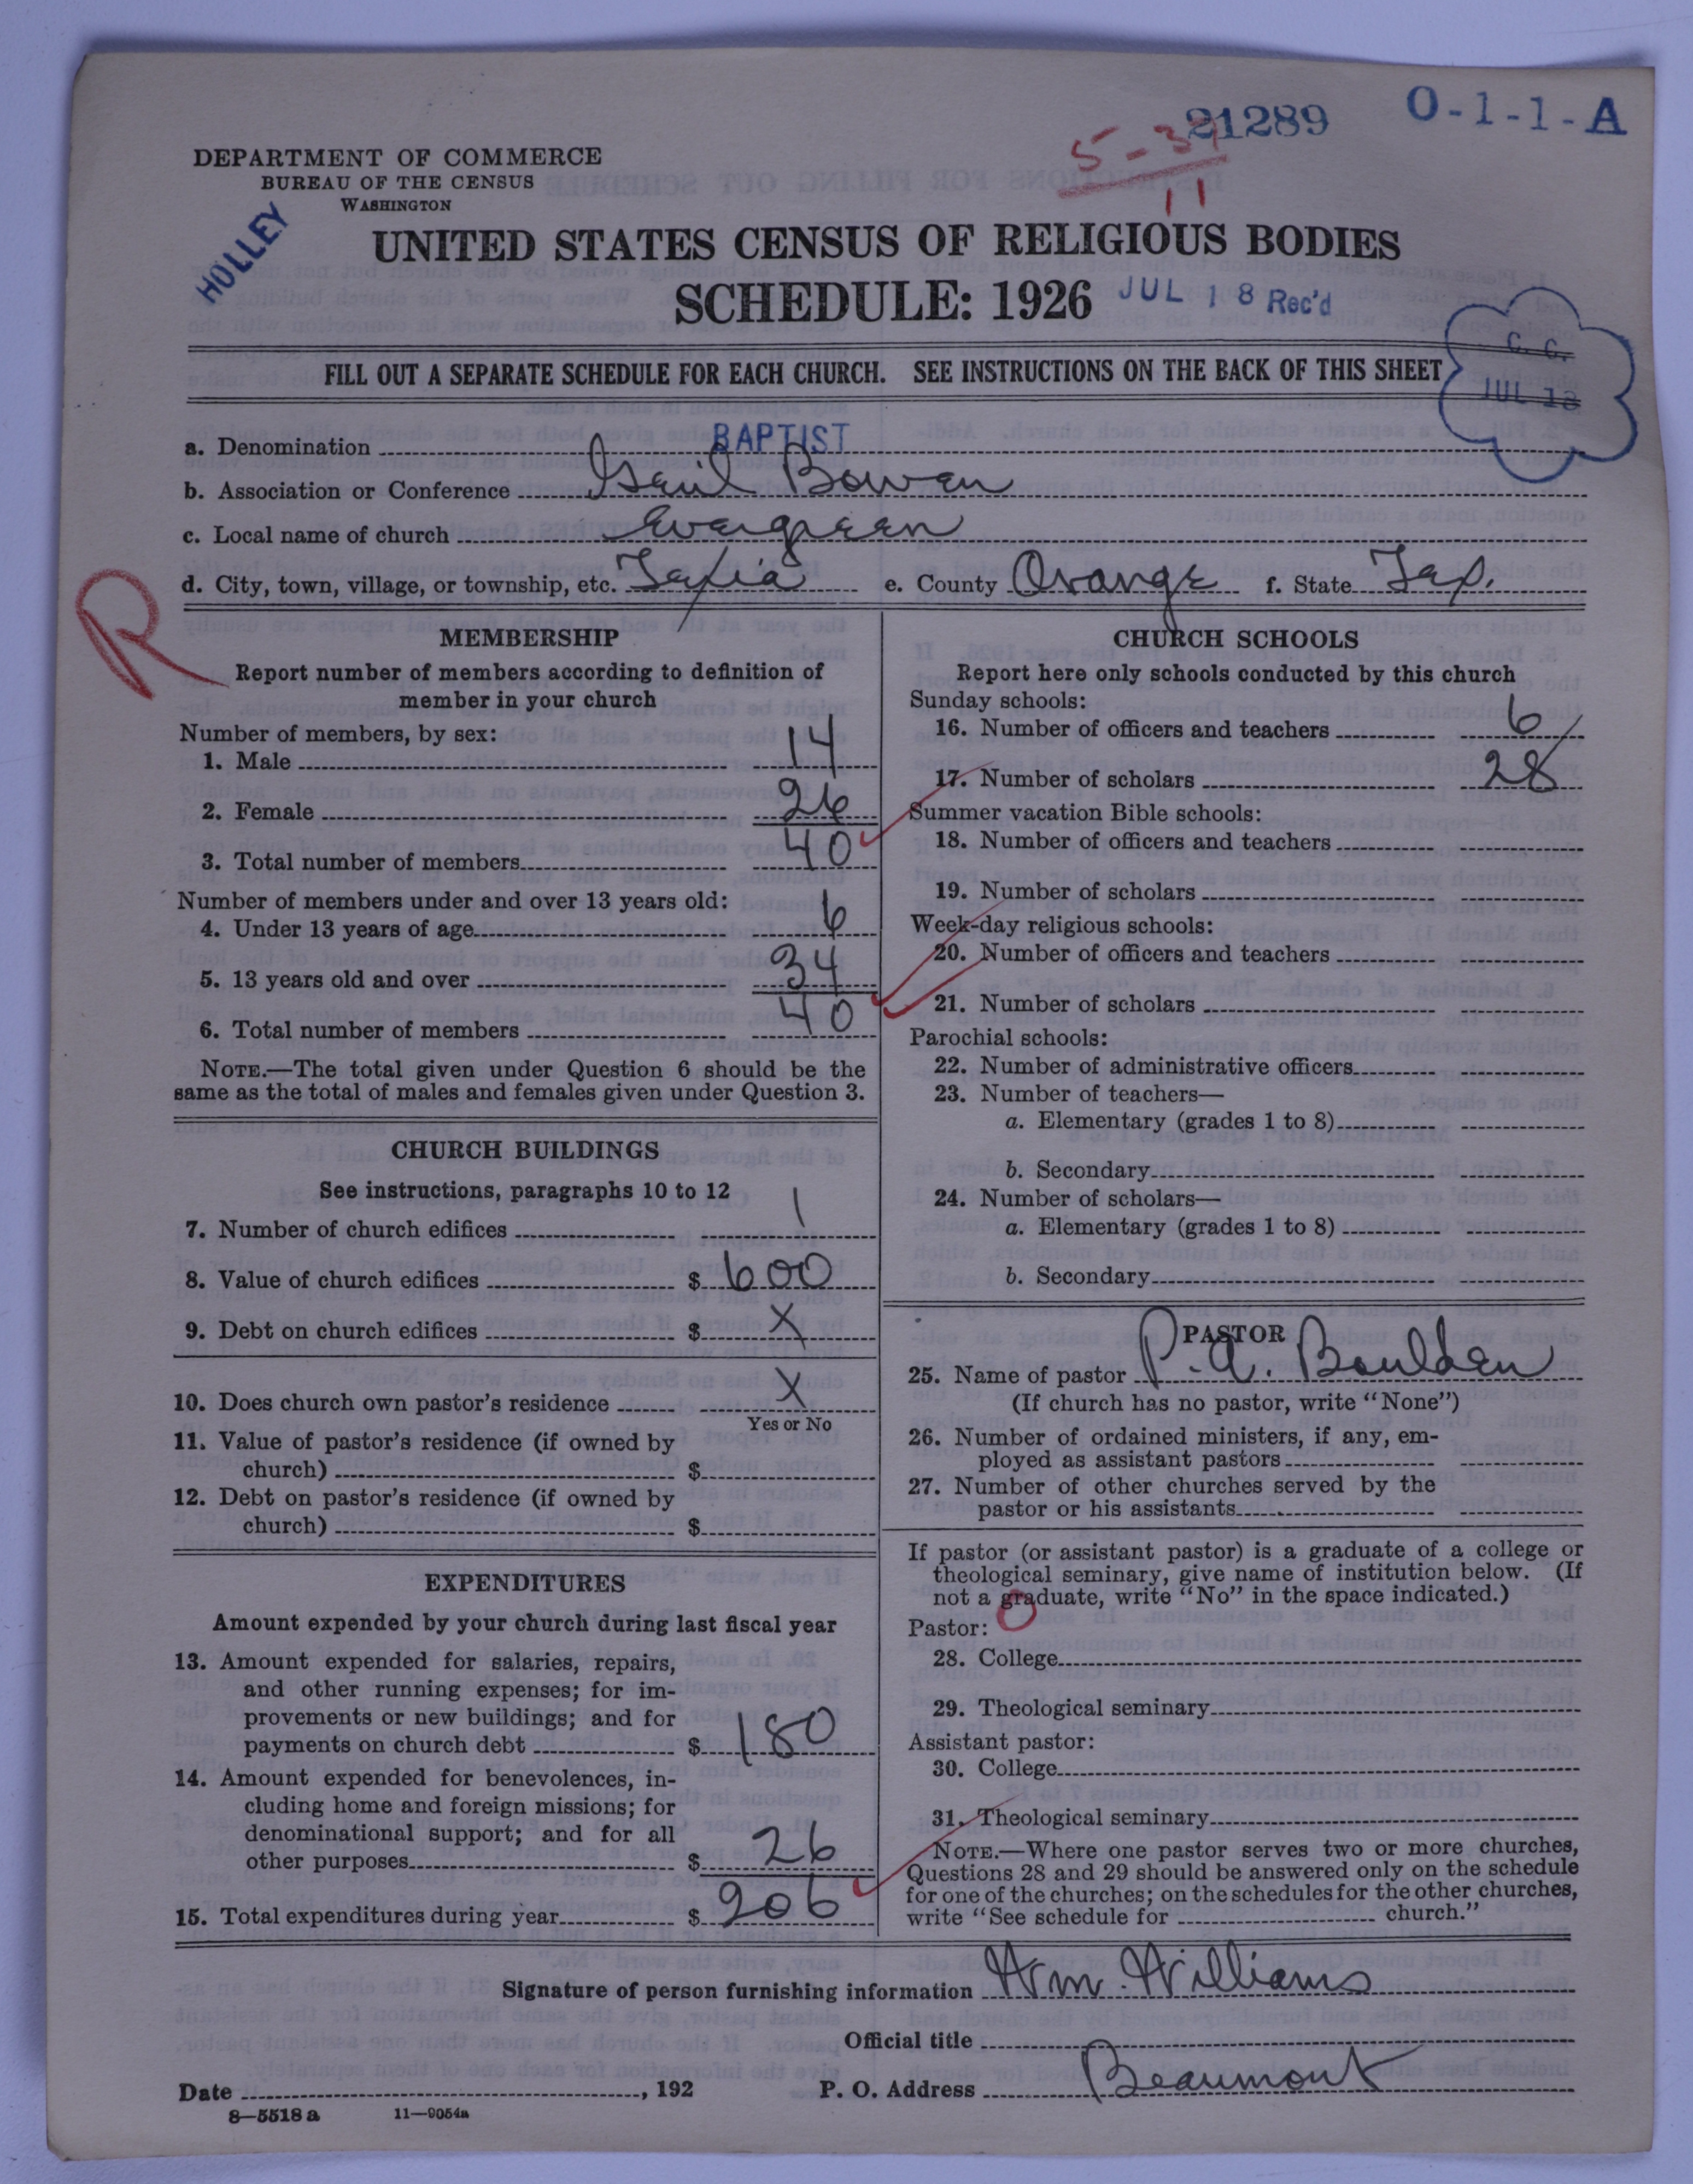 21289 O-1-1-A
5-34
11
DEPARTMENT OF COMMERCE
BUREAU OF THE CENSUS
WASHINGTON
HOLLEY
UNITED STATES CENSUS OF RELIGIOUS BODIES
SCHEDULE: 1926 JUL 18 Rec'd
C. C.
JUL 18
FILL OUT A SEPARATE SCHEDULE FOR EACH CHURCH. SEE INSTRUCTIONS ON THE BACK OF THIS SHEET
a. Denomination BAPTIST
b. Association or Conference Bowen
c. Local name of church Evergreen
d. City, town, village, or township, etc. e. County Orange f. State Tex.
R
MEMBERSHIP
Report number of members according to definition of
member in your church
Number of members, by sex:
1. Male 14
2. Female 26
3. Total number of members 40
Number of members under and over 13 years old:
4. Under 13 years of age 6
5. 13 years old and over 34
6. Total number of members 40
NOTE.—The total given under Question 6 should be the
same as the total of males and females given under Question 3.
CHURCH BUILDINGS
See instructions, paragraphs 10 to 12
7. Number of church edifices 1
8. Value of church edifices $ 600
9. Debt on church edifices $ X
10. Does church own pastor's residence X
Yes or No
11. Value of pastor's residence (if owned by
church) $
12. Debt on pastor's residence (if owned by
church) $
EXPENDITURES
Amount expended by your church during last fiscal year
13. Amount expended for salaries, repairs,
and other running expenses; for im-
provements or new buildings; and for
payments on church debt $ 180
14. Amount expended for benevolences, in-
cluding home and foreign missions; for
denominational support; and for all
other purposes $ 26
15. Total expenditures during year $ 206
CHURCH SCHOOLS
Report here only schools conducted by this church
Sunday schools:
16. Number of officers and teachers 6
17. Number of scholars 28
Summer vacation Bible schools:
18. Number of officers and teachers
19. Number of scholars
Week-day religious schools:
20. Number of officers and teachers
21. Number of scholars
Parochial schools:
22. Number of administrative officers
23. Number of teachers—
a. Elementary (grades 1 to 8)
b. Secondary
24. Number of scholars—
a. Elementary (grades 1 to 8)
b. Secondary
PASTOR
25. Name of pastor P. A. Boulden
(If church has no pastor, write "None")
26. Number of ordained ministers, if any, em-
ployed as assistant pastors
27. Number of other churches served by the
pastor or his assistants
If pastor (or assistant pastor) is a graduate of a college or
theological seminary, give name of institution below. (If
not a graduate, write "No" in the space indicated.)
Pastor:
28. College
29. Theological seminary
Assistant pastor:
30. College
31. Theological seminary
NOTE.—Where one pastor serves two or more churches,
Questions 28 and 29 should be answered only on the schedule
for one of the churches; on the schedules for the other churches,
write "See schedule for church."
Signature of person furnishing information Wm. Williams
Official title
Date , 192 P. O. Address Beaumont
8—5518 a 11—9054a